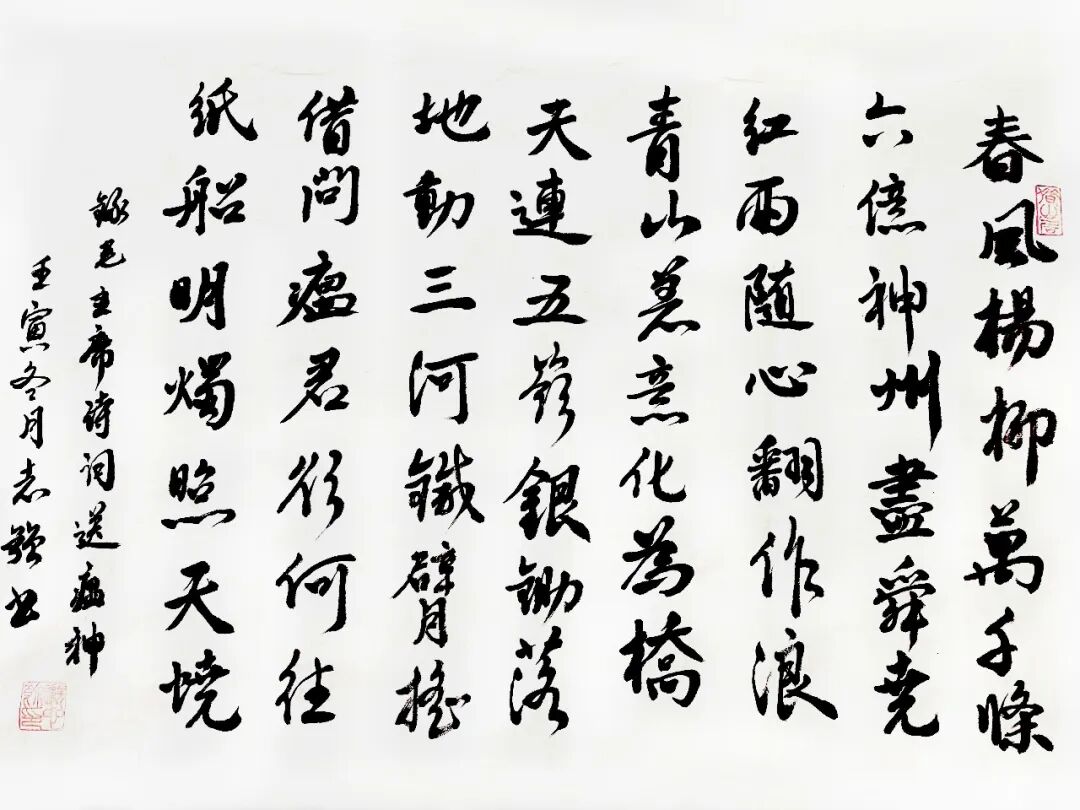 春風楊柳萬千條
六億神州盡舜堯
紅雨随心翻作浪
青山着意化為橋
天連五嶺銀鋤落
地動三河鐵臂搖
借問瘟君欲何往
紙船明燭照天燒
錄毛主席诗词送瘟神
壬寅冬月志強书